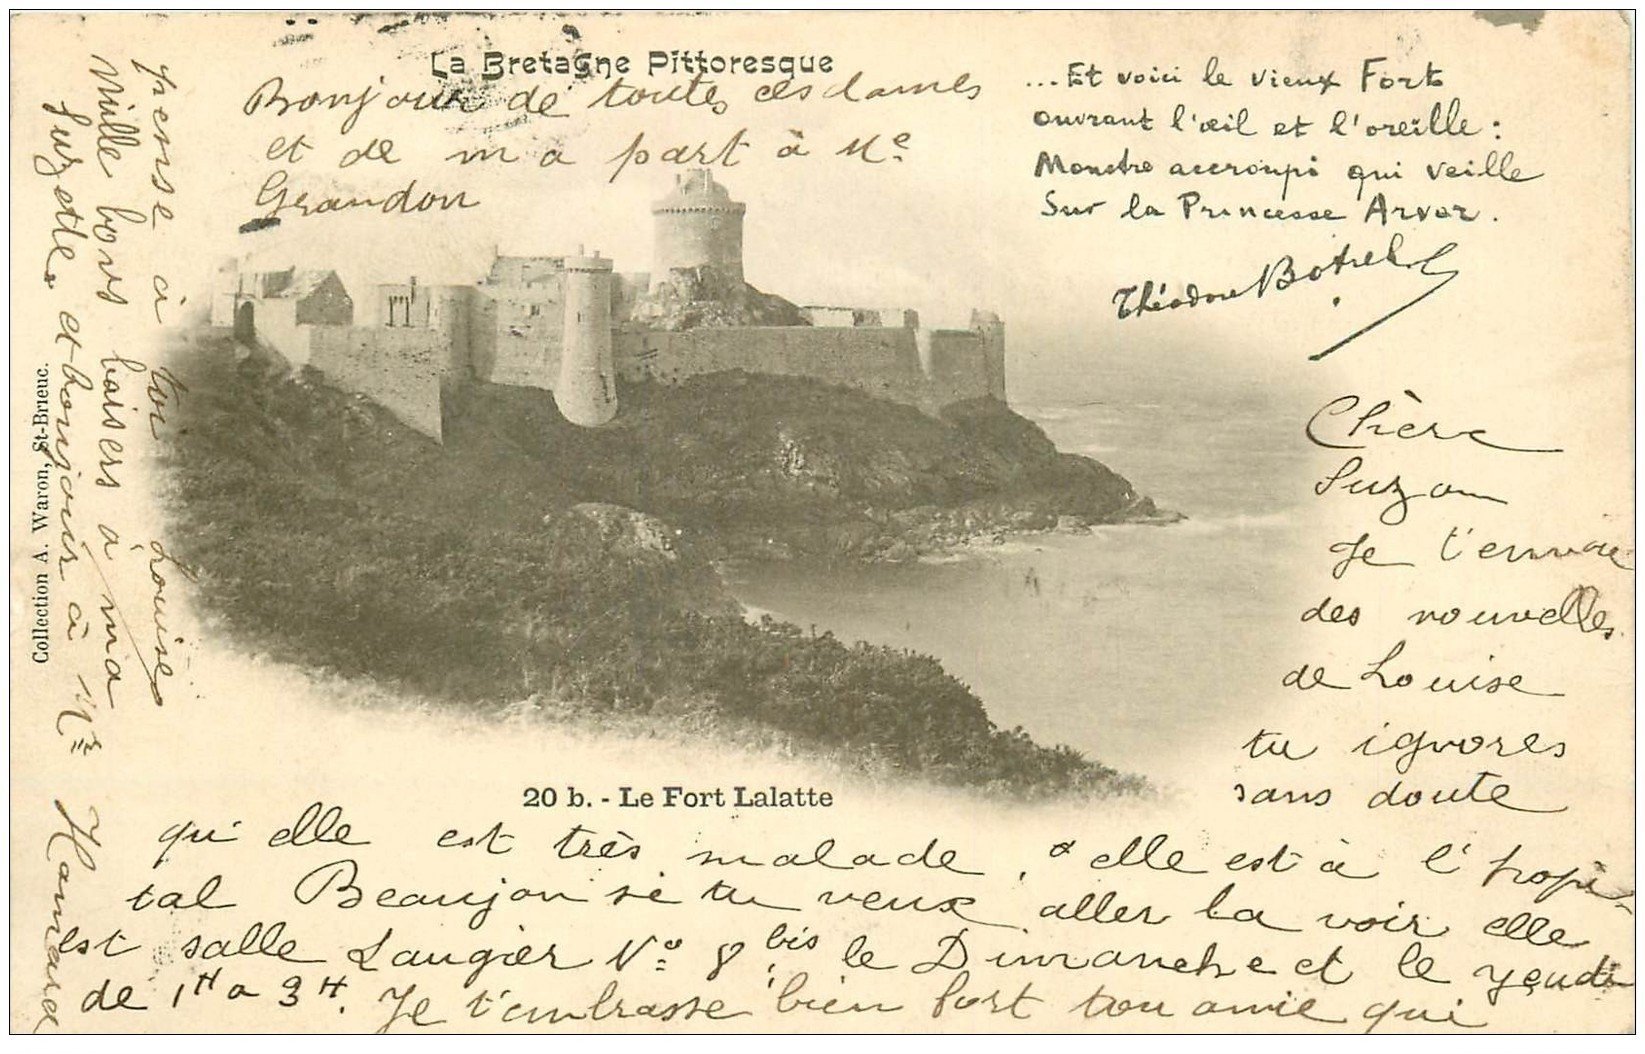 La Bretagne Pittoresque
... Et voici le vieux Fort
ouvrant l'œil et l'oreille :
Monstre accroupi qui veille
Sur la Princesse Arvor.
Théodore Botrel
Bonjour de toutes ces dames
et de ma part à Me
Grandon
Chère
Suzon
Je t'envoie
des nouvelles
de Louise
tu ignores
sans doute
20 b. - Le Fort Lalatte
qu'elle est très malade, elle est à l'hopi-
tal Beaujon si tu veux aller la voir elle
est salle Laugier No 8 bis le Dimanche et le jeudi
de 1H a 3H. Je t'embrasse bien fort ton amie qui
pense à toi Louise
Mille bons baisers à ma
Suzette et bonjour à Mr
Collection A. Waron, St-Brieuc.